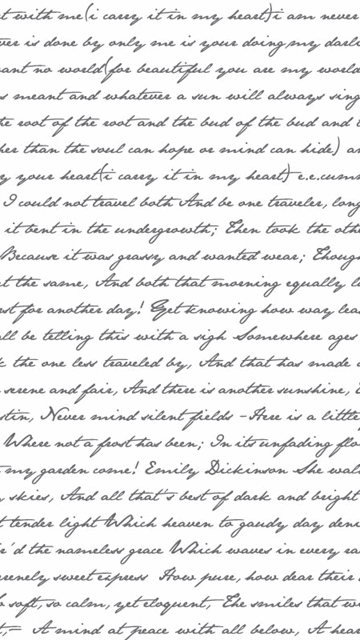 t with me(i carry it in my heart)i am never
ver is done by only me is your doing,my darli
want no world(for beautiful you are my world
s meant and whatever a sun will always sing
he root of the root and the bud of the bud and t
her than the soul can hope or mind can hide) an
y your heart(i carry it in my heart) e.e.cumm
I could not travel both And be one traveler, long
it bent in the undergrowth; Then took the oth
Because it was grassy and wanted wear; Though
ut the same, And both that morning equally la
rst for another day! Yet knowing how way lead
all be telling this with a sigh Somewhere ages
k the one less traveled by, And that has made a
serene and fair, And there is another sunshine,
stin, Never mind silent fields - Here is a little
Where not a frost has been; In its unfading flo
my garden come! Emily Dickinson She walk
skies, And all that's best of dark and bright
t tender light Which heaven to gaudy day deni
ir'd the nameless grace Which waves in every ra
erenely sweet express How pure, how dear their
o soft, so calm, yet eloquent, The smiles that w
A mind at peace with all below, A hear